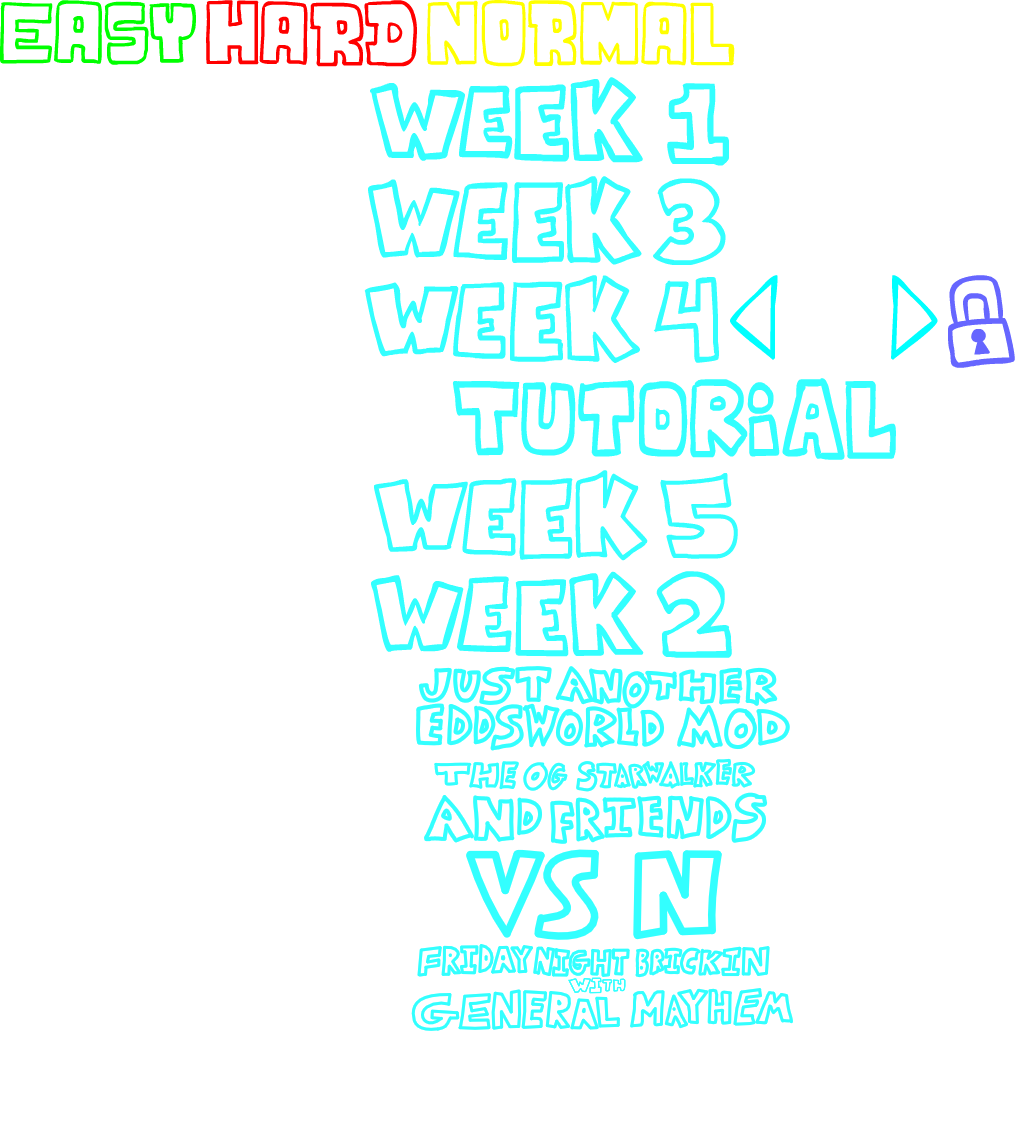 EASY HARD NORMAL
WEEK 1
WEEK 3
WEEK 4
TUTORiAL
WEEK 5
WEEK 2
JUST ANOTHER
EDDSWORLD MOD
THE OG STARWALKER
AND FRIENDS
VS N
FRIDAY NIGHT BRICKIN
WITH
GENERAL MAYHEM